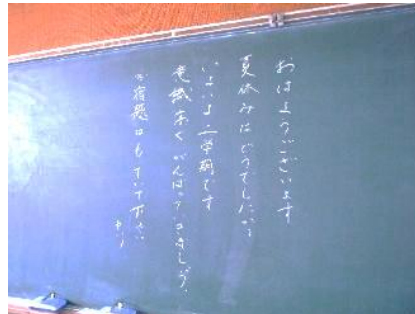 おはようございます
夏休みはどうでしたか?
いよいよ二学期です
意識高くがんばっていきましょう.
宿題はもすいて下さい